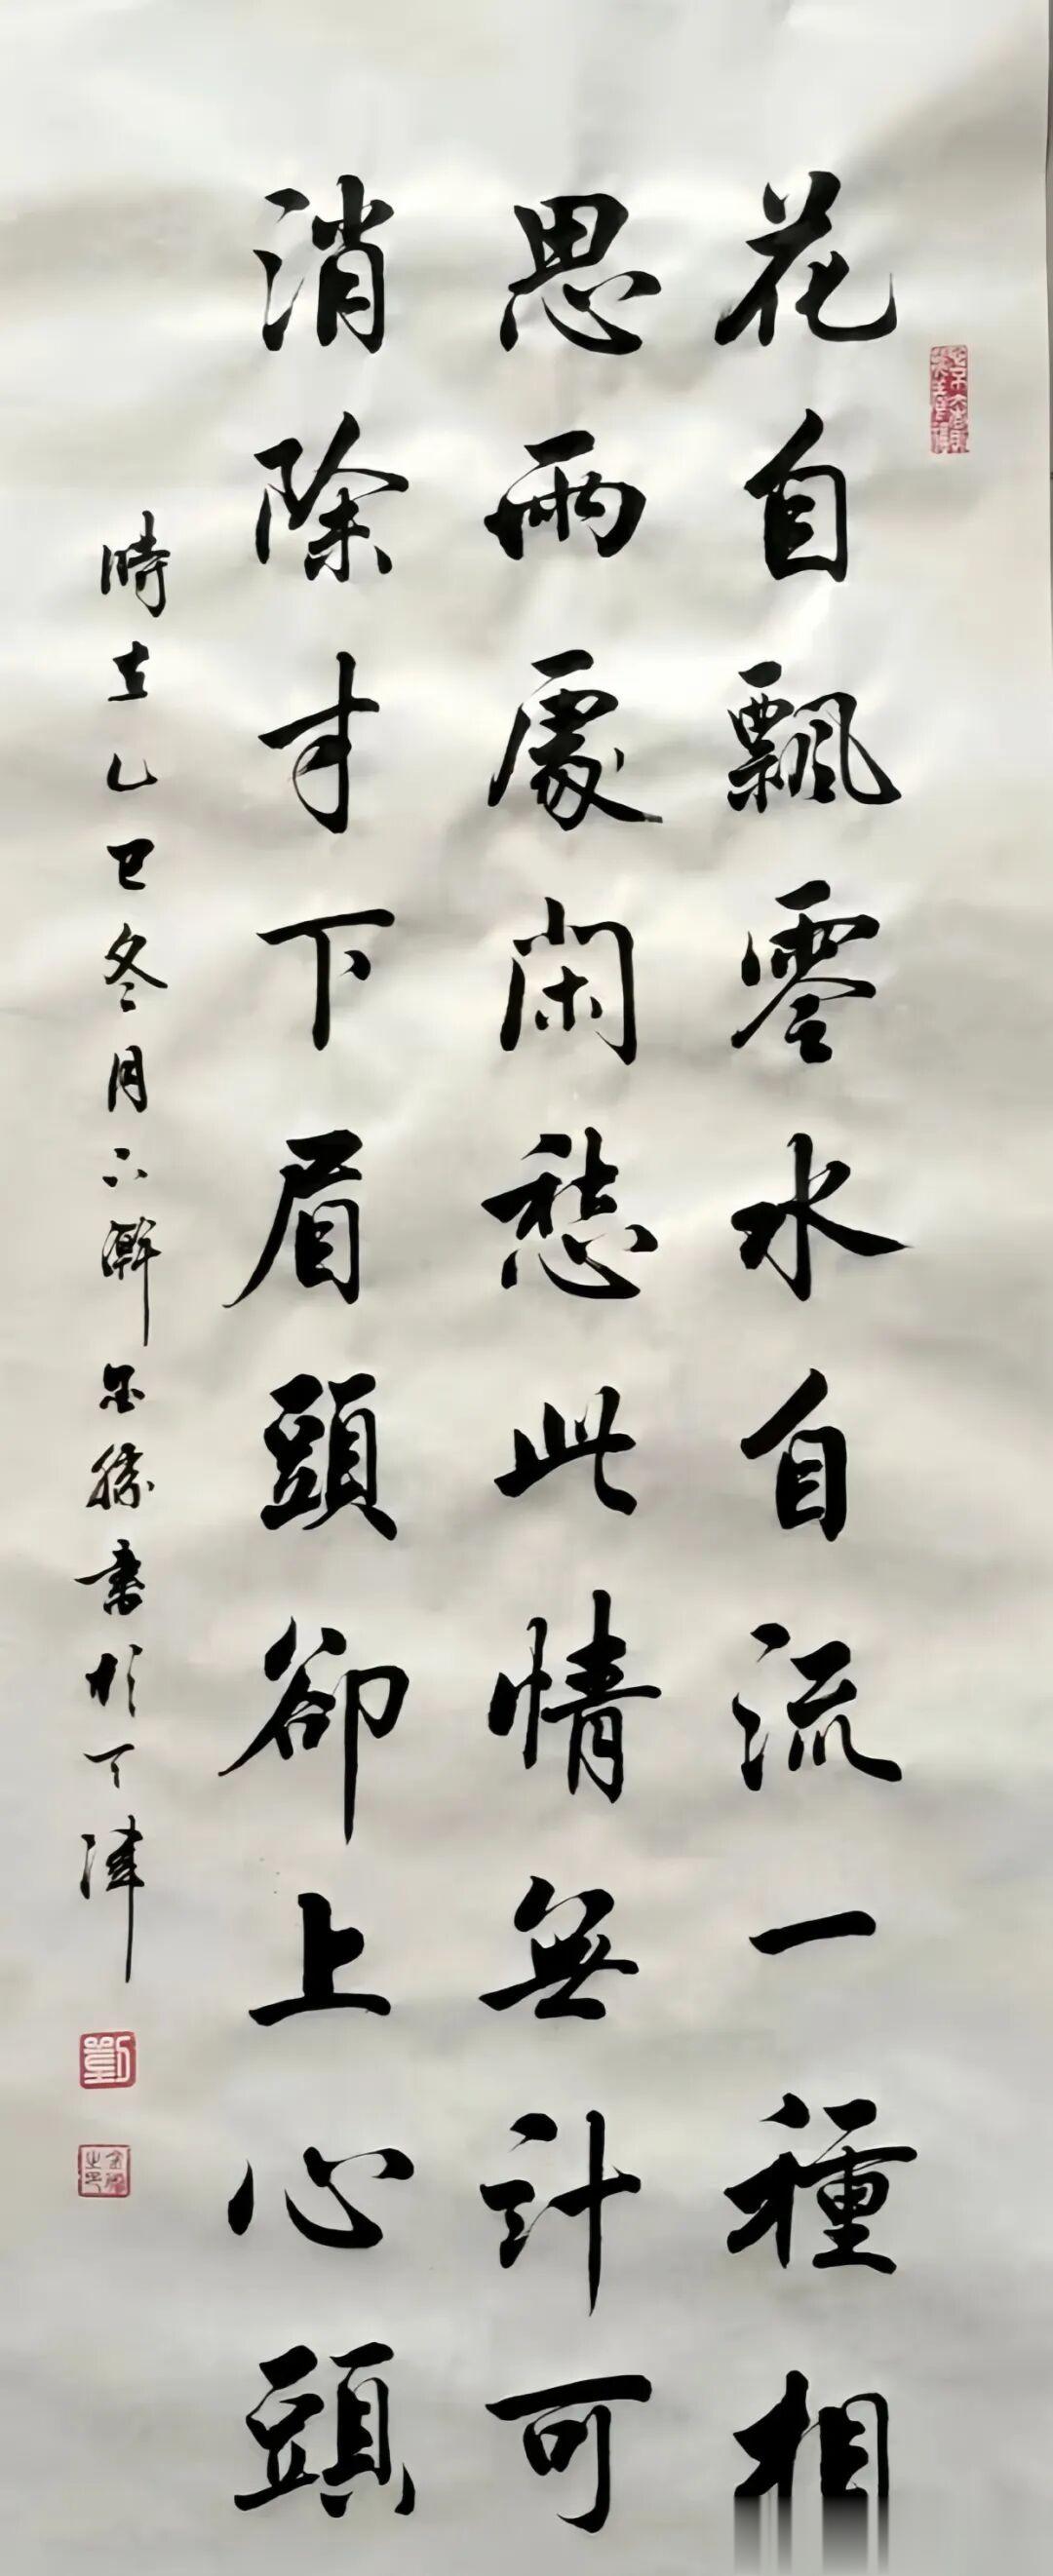 花自飄零水自流一種相
思兩處閑愁此情無計可
消除才下眉頭卻上心頭
時在乙巳冬月下澣書於天津
劉